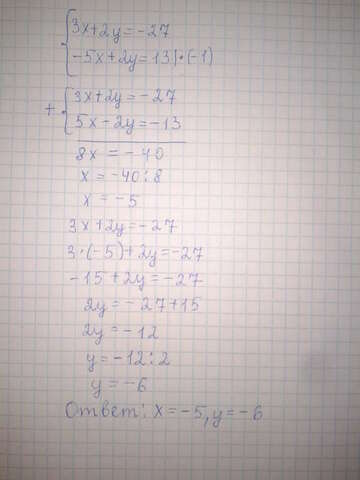 3x+2y=-27
-5x+2y=13|·(-1)
3x+2y=-27
+
5x-2y=-13
8x=-40
x=-40:8
x=-5
3x+2y=-27
3·(-5)+2y=-27
-15+2y=-27
2y=-27+15
2y=-12
y=-12:2
y=-6
Ответ: x=-5, y=-6